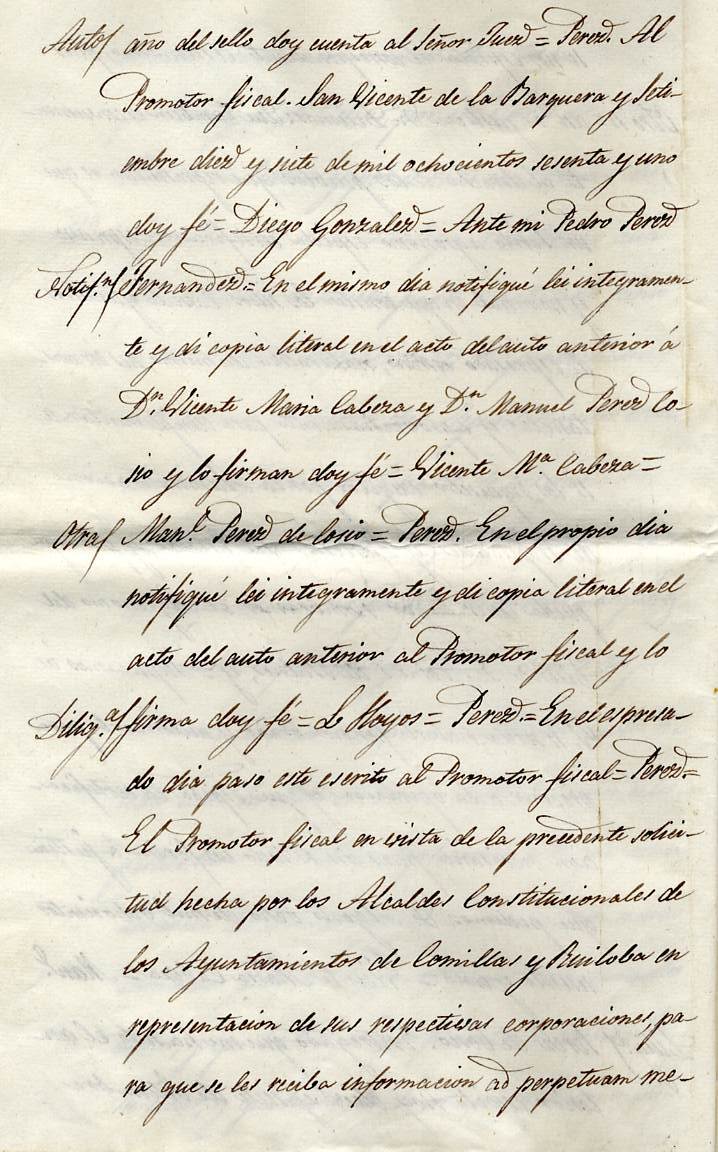 Auto año del sello doy cuenta al Señor Juez = Perez. Al
Promotor fiscal. San Vicente de la Barquera y Seti-
embre diez y siete de mil ochocientos sesenta y uno
doy fé = Diego Gonzalez = Ante mi Pedro Perez
Notif.n Fernandez = En el mismo dia notifiqué lei integramen-
te y di copia literal en el acto del auto anterior á
D.n Vicente Maria Cabeza y D.n Manuel Perez Co-
sio y lo firman doy fé = Vicente M.a Cabeza =
Otra Man.l Perez de Cosio = Perez. En el propio dia
notifiqué lei integramente y di copia literal en el
acto del auto anterior al Promotor fiscal y lo
Dilig.a firma doy fé = L Hoyos = Perez. = En el espresa-
do dia paso este escrito al Promotor fiscal = Perez =
El Promotor fiscal en vista de la precedente solici-
tud hecha por los Alcaldes Constitucionales de
los Ayuntamientos de Comillas y Ruiloba en
representacion de sus respectivas corporaciones, pa-
ra que se les reciba informacion ad perpetuam me-